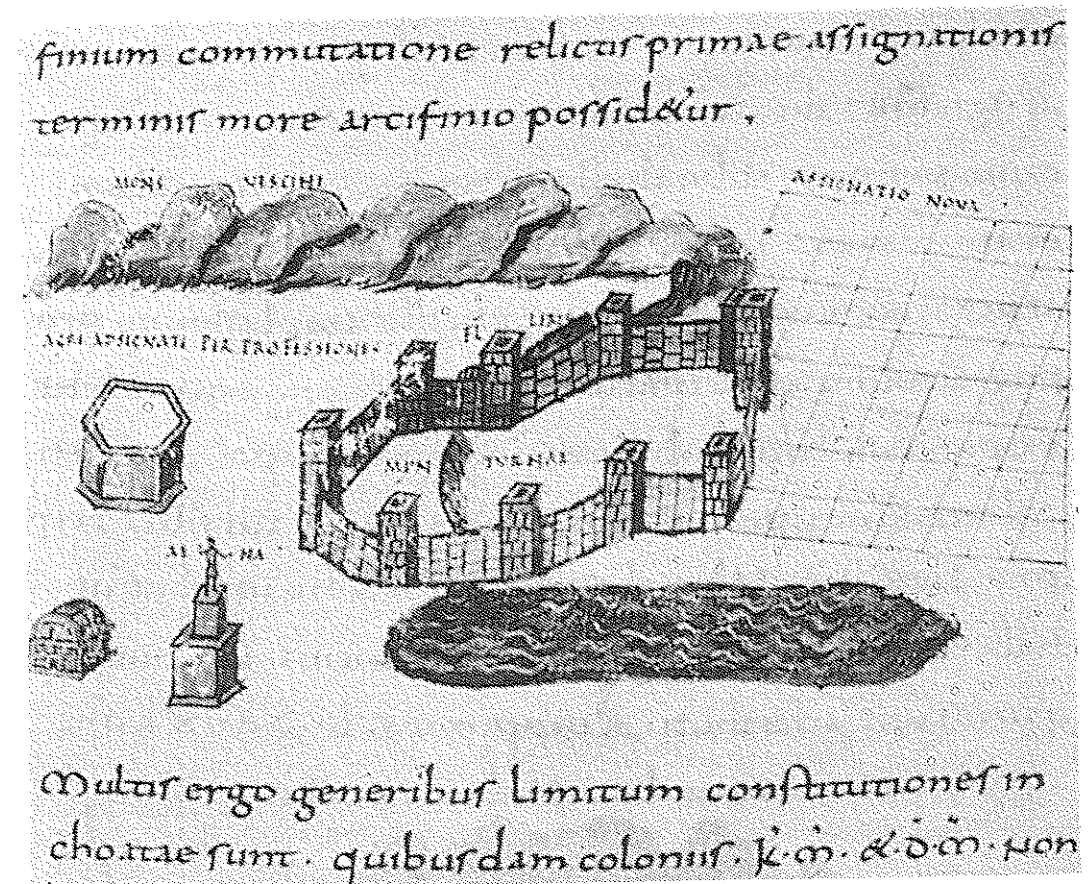 finium commutatione relictis primae assignationis
terminis more arcifinio possid&ur.
MONS VESCINI
ASSIGNATIO NOVA
FL LIRIS
AGRI ADSIGNATI PER PROFESSIONES
MIN TURNAE
Multis ergo generibus limitum constitutiones in
choatae sunt. quibusdam coloniis. k. m. & d. m. non